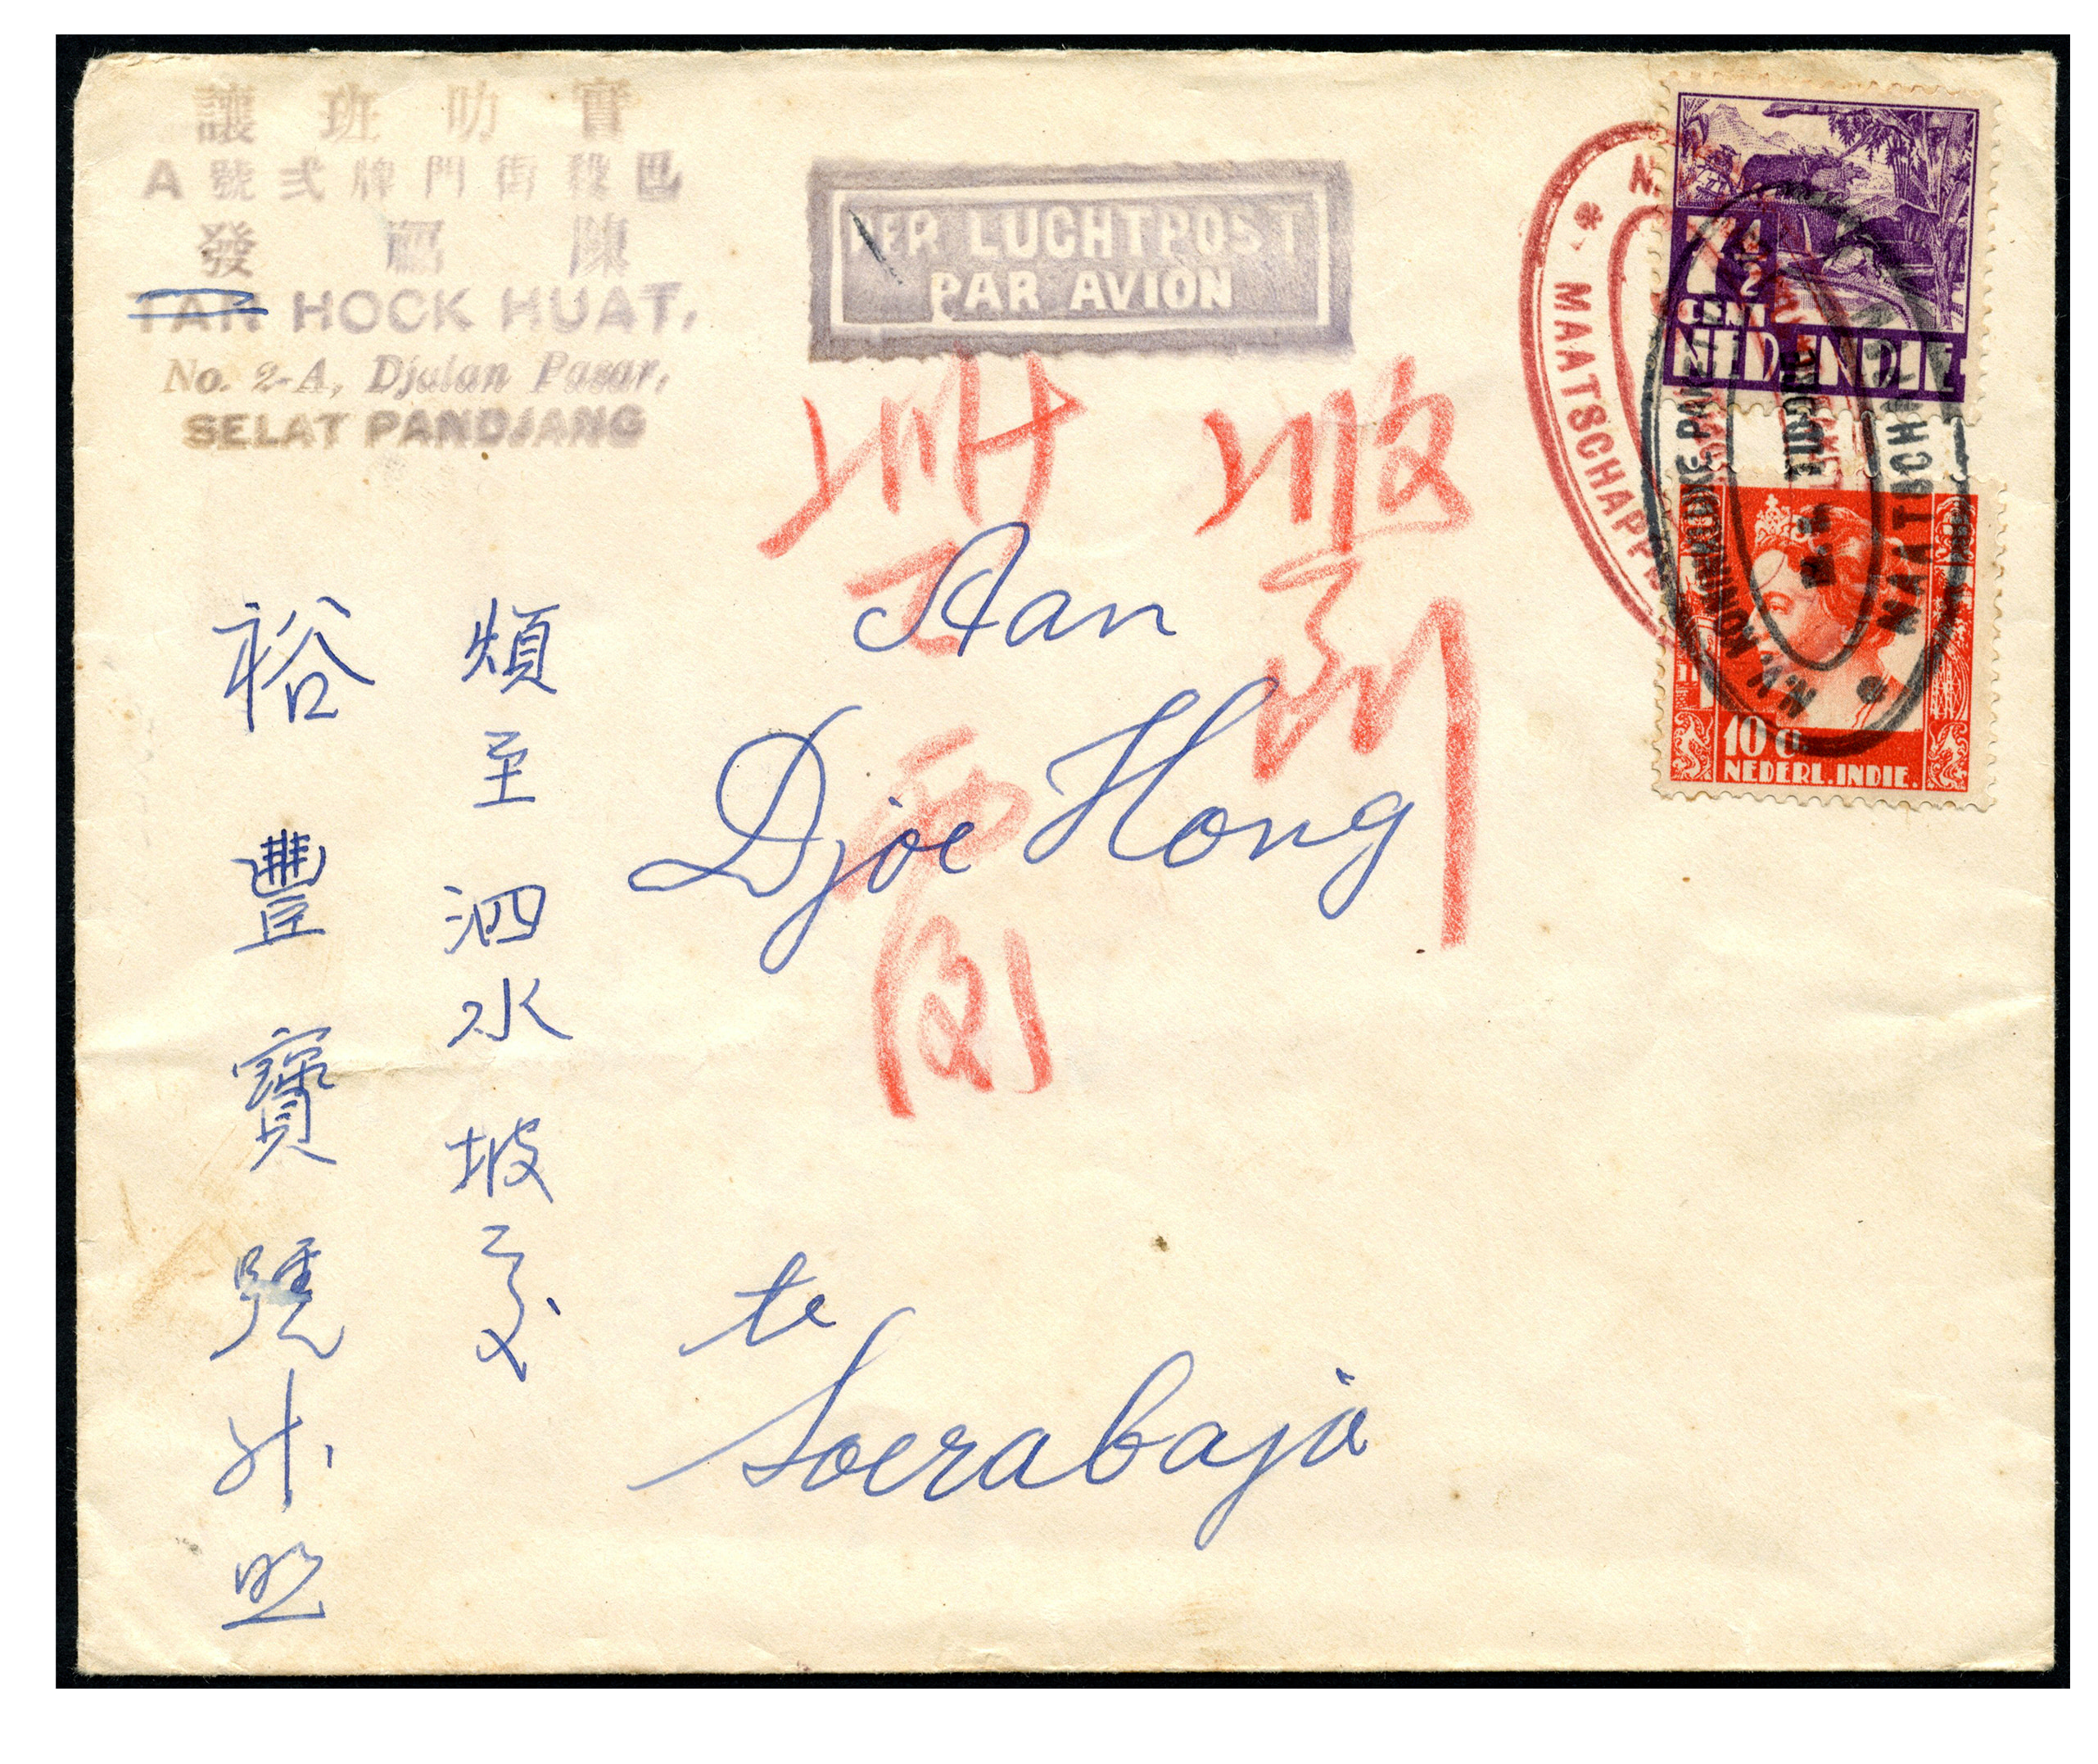 讓班叻實
A號弍牌門街殺巴
發福陳
TAN HOCK HUAT,
No. 2-A, Djalan Pasar,
SELAT PANDJANG
PER LUCHTPOST
PAR AVION
7 1/2
CENT
NED. INDIE
10 ct.
NEDERL. INDIE.
MAATSCHAPP
N.V. KONINKLIJKE PAK
MAATSCHAP
Aan
Djoe Hong
te
Soerabaja
煩至泗水坡交
裕豐寶號升照